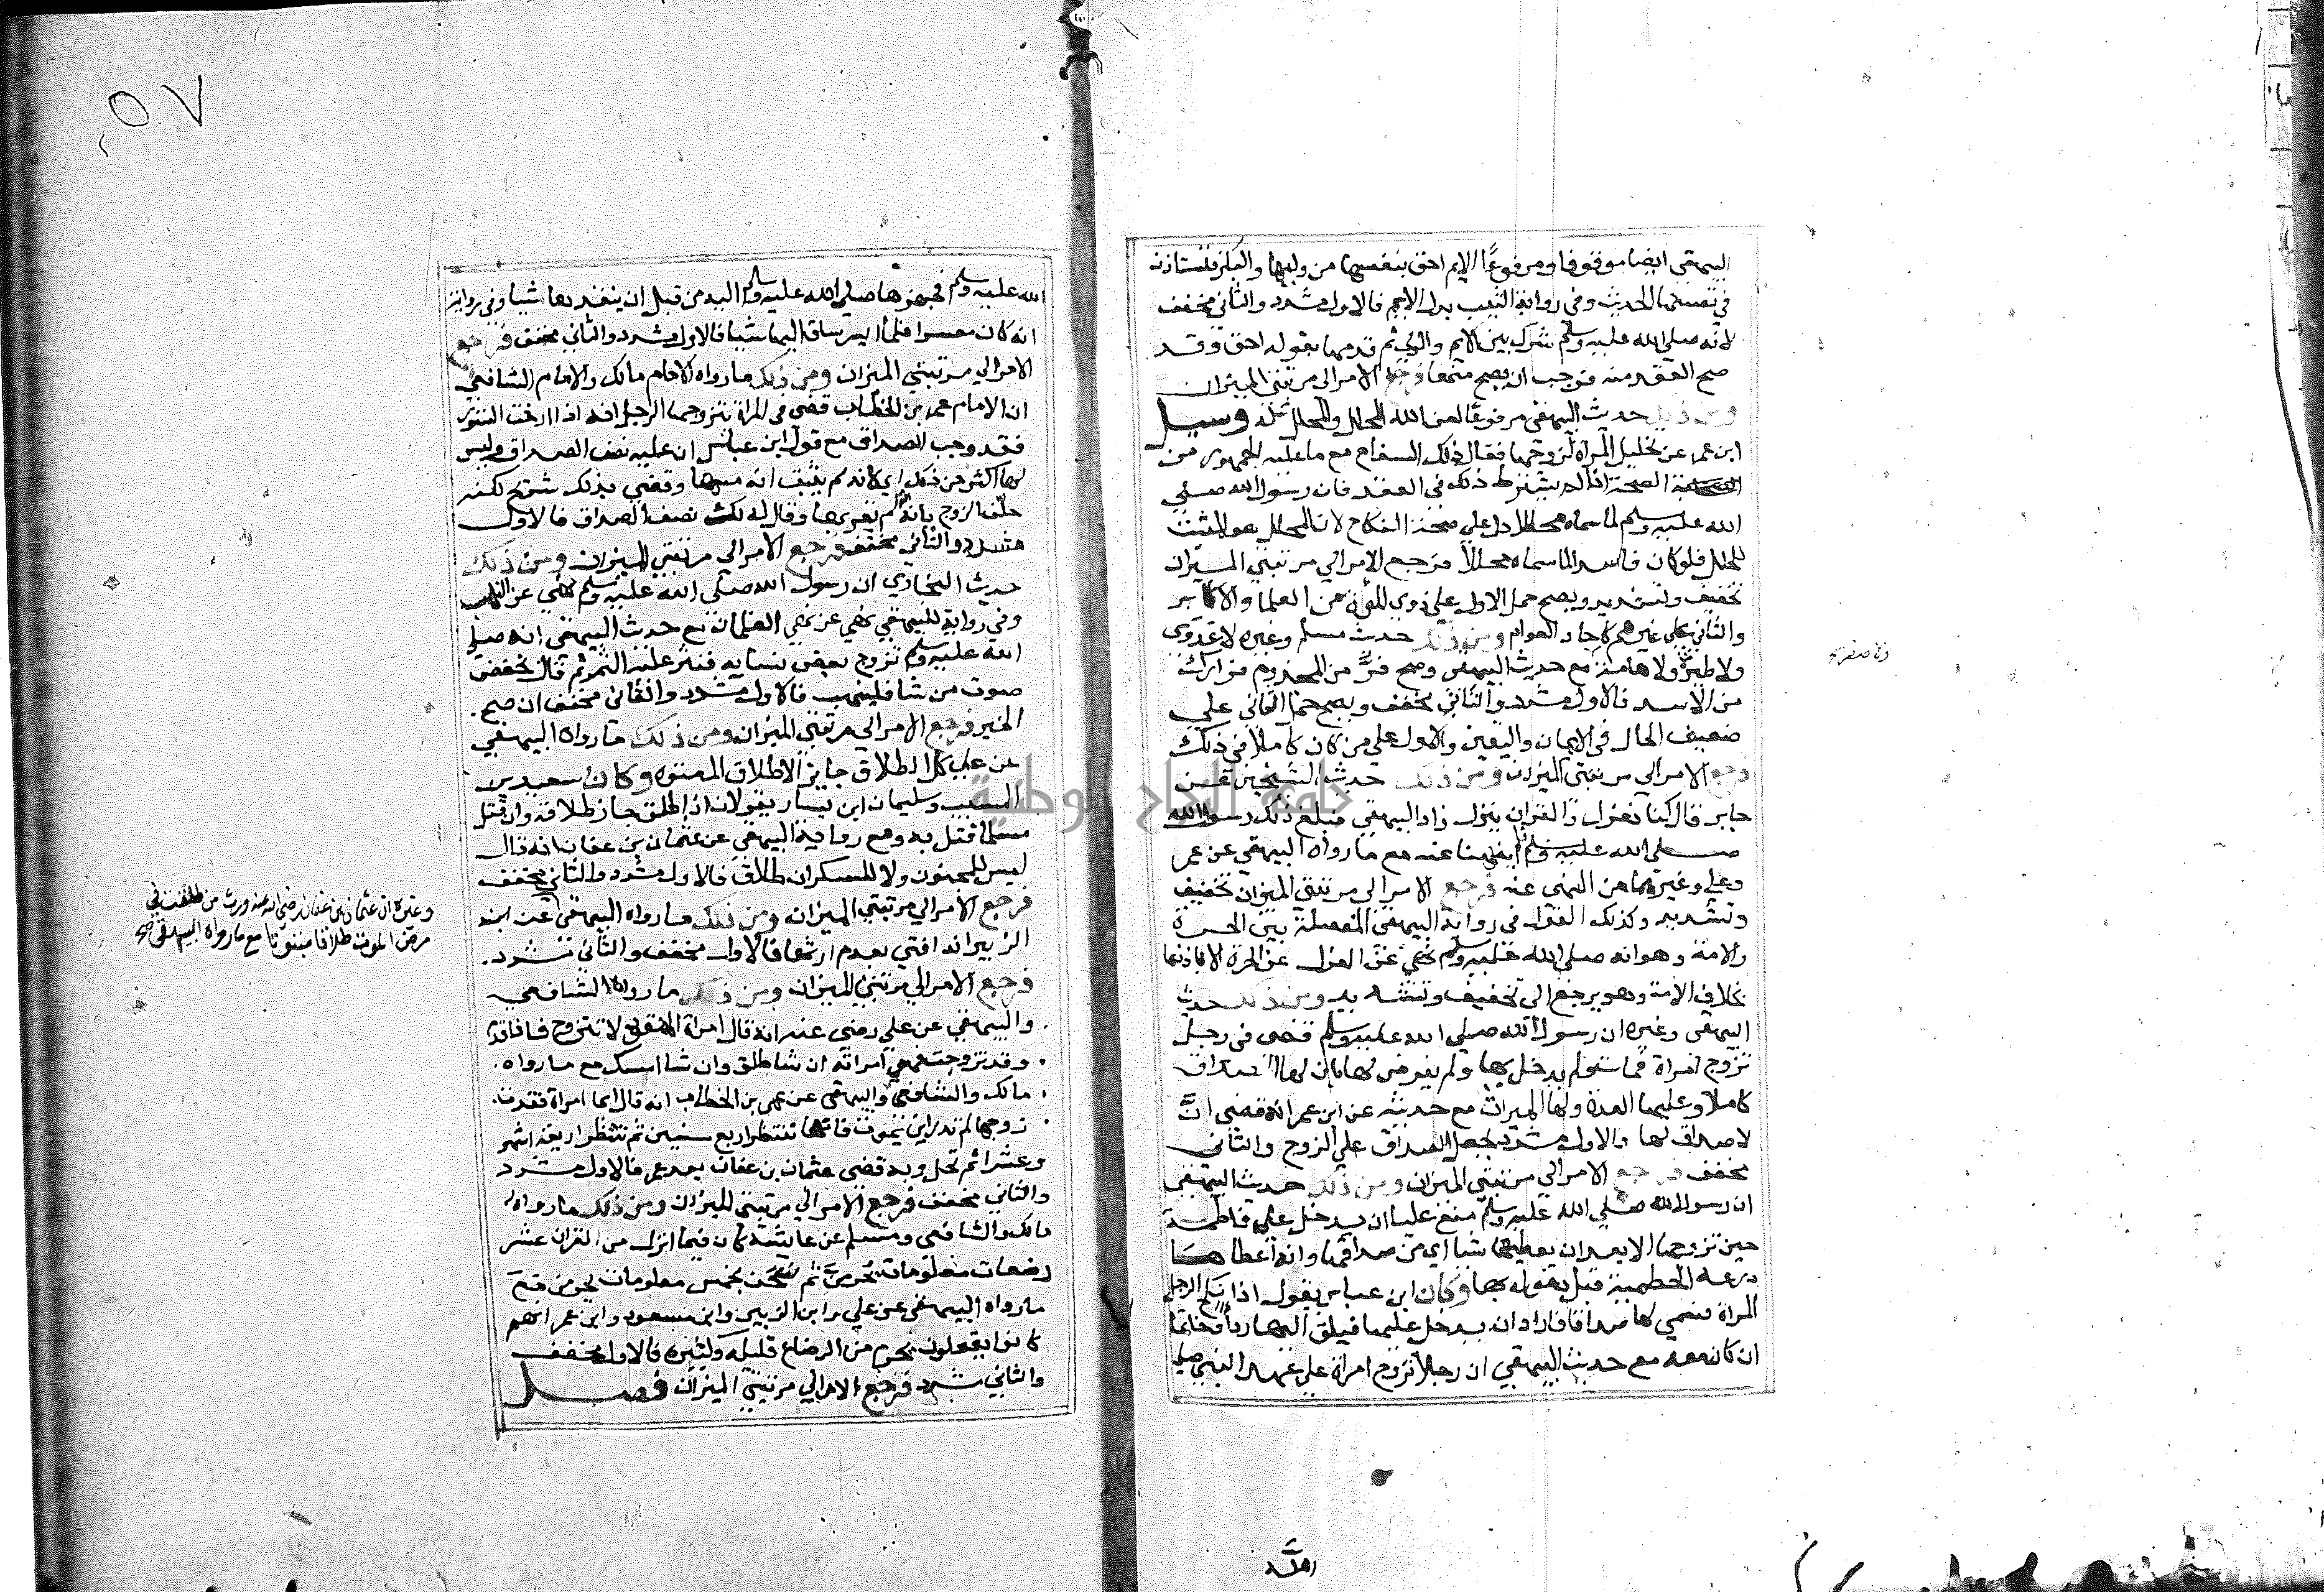 البيهقي ايضا موقوفا ومرفوعًا الايم احق بنفسها من وليها والبكر تستاذن
في نفسها الحديث وفي رواية الثيب بدل الايم فالاول مشدد والثاني مخفف
لانه صلي الله عليه وسلم شرك بين الايم والولي ثم قدمها بقوله احق وقد
صح العقد منه فوجب ان يصح منها فرجع الامر الى مرتبتي الميزان
ومن ذلك حديث البيهقي مرفوعًا لعن الله المحلل والمحلل له وسيل
ابن عمر عن تحليل المرأة لزوجها فقال ذلك السفاح مع ما عليه الجمهور من
الصحة اذا لم يشترط ذلك في العقد فان رسول الله صلي
الله عليه وسلم لما سماه محللا دل علي صحة النكاح لان المحلل هو المثبت
للحل فلو كان فاسدا لما سماه محللاً فرجع الامر الي مرتبتي الميزان
تخفيف وتشديد ويصح حمل الاول علي ذوي المروة من العلما والاكابر
والثاني علي غيرهم كاحاد العوام ومن ذلك حديث مسلم وغيره لا عدوي
ولا طيرة ولا هامة مع حديث البيهقي وصح فرَّ من المجذوم فرارك
من الاسد فالاول مشدد والثاني مخفف ويصح حمل الثاني علي
ضعيف الحال في الايمان واليقين والاول علي من كان كاملاً في ذلك
فرجع الامر الي مرتبتي الميزان ومن ذلك حديث الشيخين عن
جابر قال كنا نعزل والقران ينزل زاد البيهقي فبلغ ذلك رسول الله
صلي الله عليه وسلم فلم ينهنا عنه مع ما رواه البيهقي عن عمر
وعلي وغيرهما من النهي عنه فرجع الامر الي مرتبتي الميزان تخفيف
وتشديد وكذلك القول في رواية البيهقي المفصلة بين الحرة
والامة وهو انه صلي الله عليه وسلم نهي عن العزل عن الحرة الا باذنها
بخلاف الامة وهو يرجع الي تخفيف وتشديد ومن ذلك حديث
البيهقي وغيره ان رسول الله صلي الله عليه وسلم قضى في رجل
تزوج امراة فمات ولم يدخل بها ولم يفرض لها بان لها الصداق
كاملا وعليها العدة ولها الميراث مع حديثه عن ابن عمر انه قضى انَّ
لا صداق لها والاول مشدد بجعل الصداق علي الزوج والثاني
مخفف فرجع الامر الي مرتبتي الميزان ومن ذلك حديث البيهقي
ان رسول الله صلي الله عليه وسلم منع عليا ان يدخل علي فاطمة
حين تزوجها الا بعد ان يعطيها شيا اي من صداقها وانه اعطاها
درعه الحطمية قبل دخوله بها وكان ابن عباس يقول اذا نكح الرجل
المراة فسمي لها صداقا فاراد ان يدخل عليها فيلق اليها رداً او خاتما
ان كان معه مع حديث البيهقي ان رجلاً تزوج امراة علي عهد النبي صلي
الله عليه وسلم فجهزها صلي الله عليه وسلم اليه من قبل ان ينقدها شيا وفي رواية
انه كان معسرا فلما ايسر ساق اليها شيا فالاول مشدد والثاني مخفف فرجع
الامر الي مرتبتي الميزان ومن ذلك ما رواه الامام مالك والامام الشافعي
ان الامام عمر بن الخطاب قضى في المراة يتزوجها الرجل انه اذا ارخت الستور
فقد وجب الصداق مع قول ابن عباس ان عليه نصف الصداق وليس
لها اكثر من ذلك اي لانه لم يثبت انه مسها وقضي بذلك شريح لكنه
حلّف الزوج بانه لم يقربها وقال له لك نصف الصداق فالاول
مشدد والثاني مخفف فرجع الامر الى مرتبتي الميزان ومن ذلك
حديث البخاري ان رسول الله صلي الله عليه وسلم نهي عن
وفي رواية للبيهقي نهي عن نهي الغلمان مع حديث البيهقي انه صلي
الله عليه وسلم تزوج بعض نسايه فنثر عليه التمر ثم قال يخفض
صوت من شا فلينهب فالاول مشدد والثاني مخفف ان صح
الخبر فرجع الامر الي مرتبتي الميزان ومن ذلك ما رواه البيهقي
عن علي كل الطلاق جايز الا طلاق المعتوه وكان سعيد بن
المسيب وسليمان ابن يسار يقولان اذا طلق جاز طلاقه وان قتل
مسلما قتل به ومع رواية البيهقي عن عثمان بن عفان انه قال
ليس للمجنون ولا للسكران طلاق فالاول مشدد والثاني مخفف
فرجع الامر الي مرتبتي الميزان ومن ذلك ما رواه البيهقي عن ابن
الزبير انه افتي بعدم ارثها فالاول مخفف والثاني مشدد
فرجع الامر الي مرتبتي الميزان ومن ذلك ما رواه الشافعي
والبيهقي عن علي رضي عنه انه قال امراة المفقود لا تتزوج فاذا قدم
وقد تزوجت فهي امراته ان شا طلق وان شا امسك مع ما رواه
مالك والشافعي والبيهقي عن عمر بن الخطاب انه قال ايما امراة فقدت
زوجها لم تدر اين يموت فانها تنتظر اربع سنين ثم تنتظر اربعة اشهر
وعشرا ثم تحل وبه قضى عثمان بن عفان بعد عمر فالاول مشدد
والثاني مخفف فرجع الامر الي مرتبتي الميزان ومن ذلك ما رواه
مالك والشافعي ومسلم عن عايشة كان فيما انزل من القران عشر
رضعات معلومات يحرمن ثم نسخن بخمس معلومات يحرمن مع
ما رواه البيهقي عن علي وابن الزبير وابن مسعود وابن عمر انهم
كانوا يقولون يحرم من الرضاع قليله وكثيره فالاول مخفف
والثاني مشدد فرجع الامر الي مرتبتي الميزان فصل
وغيره ان عثمان بن عفان رضي الله عنه ورث من طلقت في
مرض الموت طلاقا مبتوتا مع ما رواه البيهقي صح
جامعة النجاح الوطنية